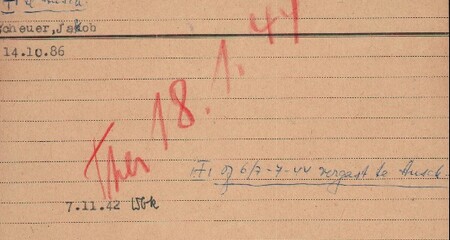 Scheuer,Jakob
14.10.86
Ther 18.1.44
of 6/7-7-44 vergast te Ausch
7.11.42 Wbk